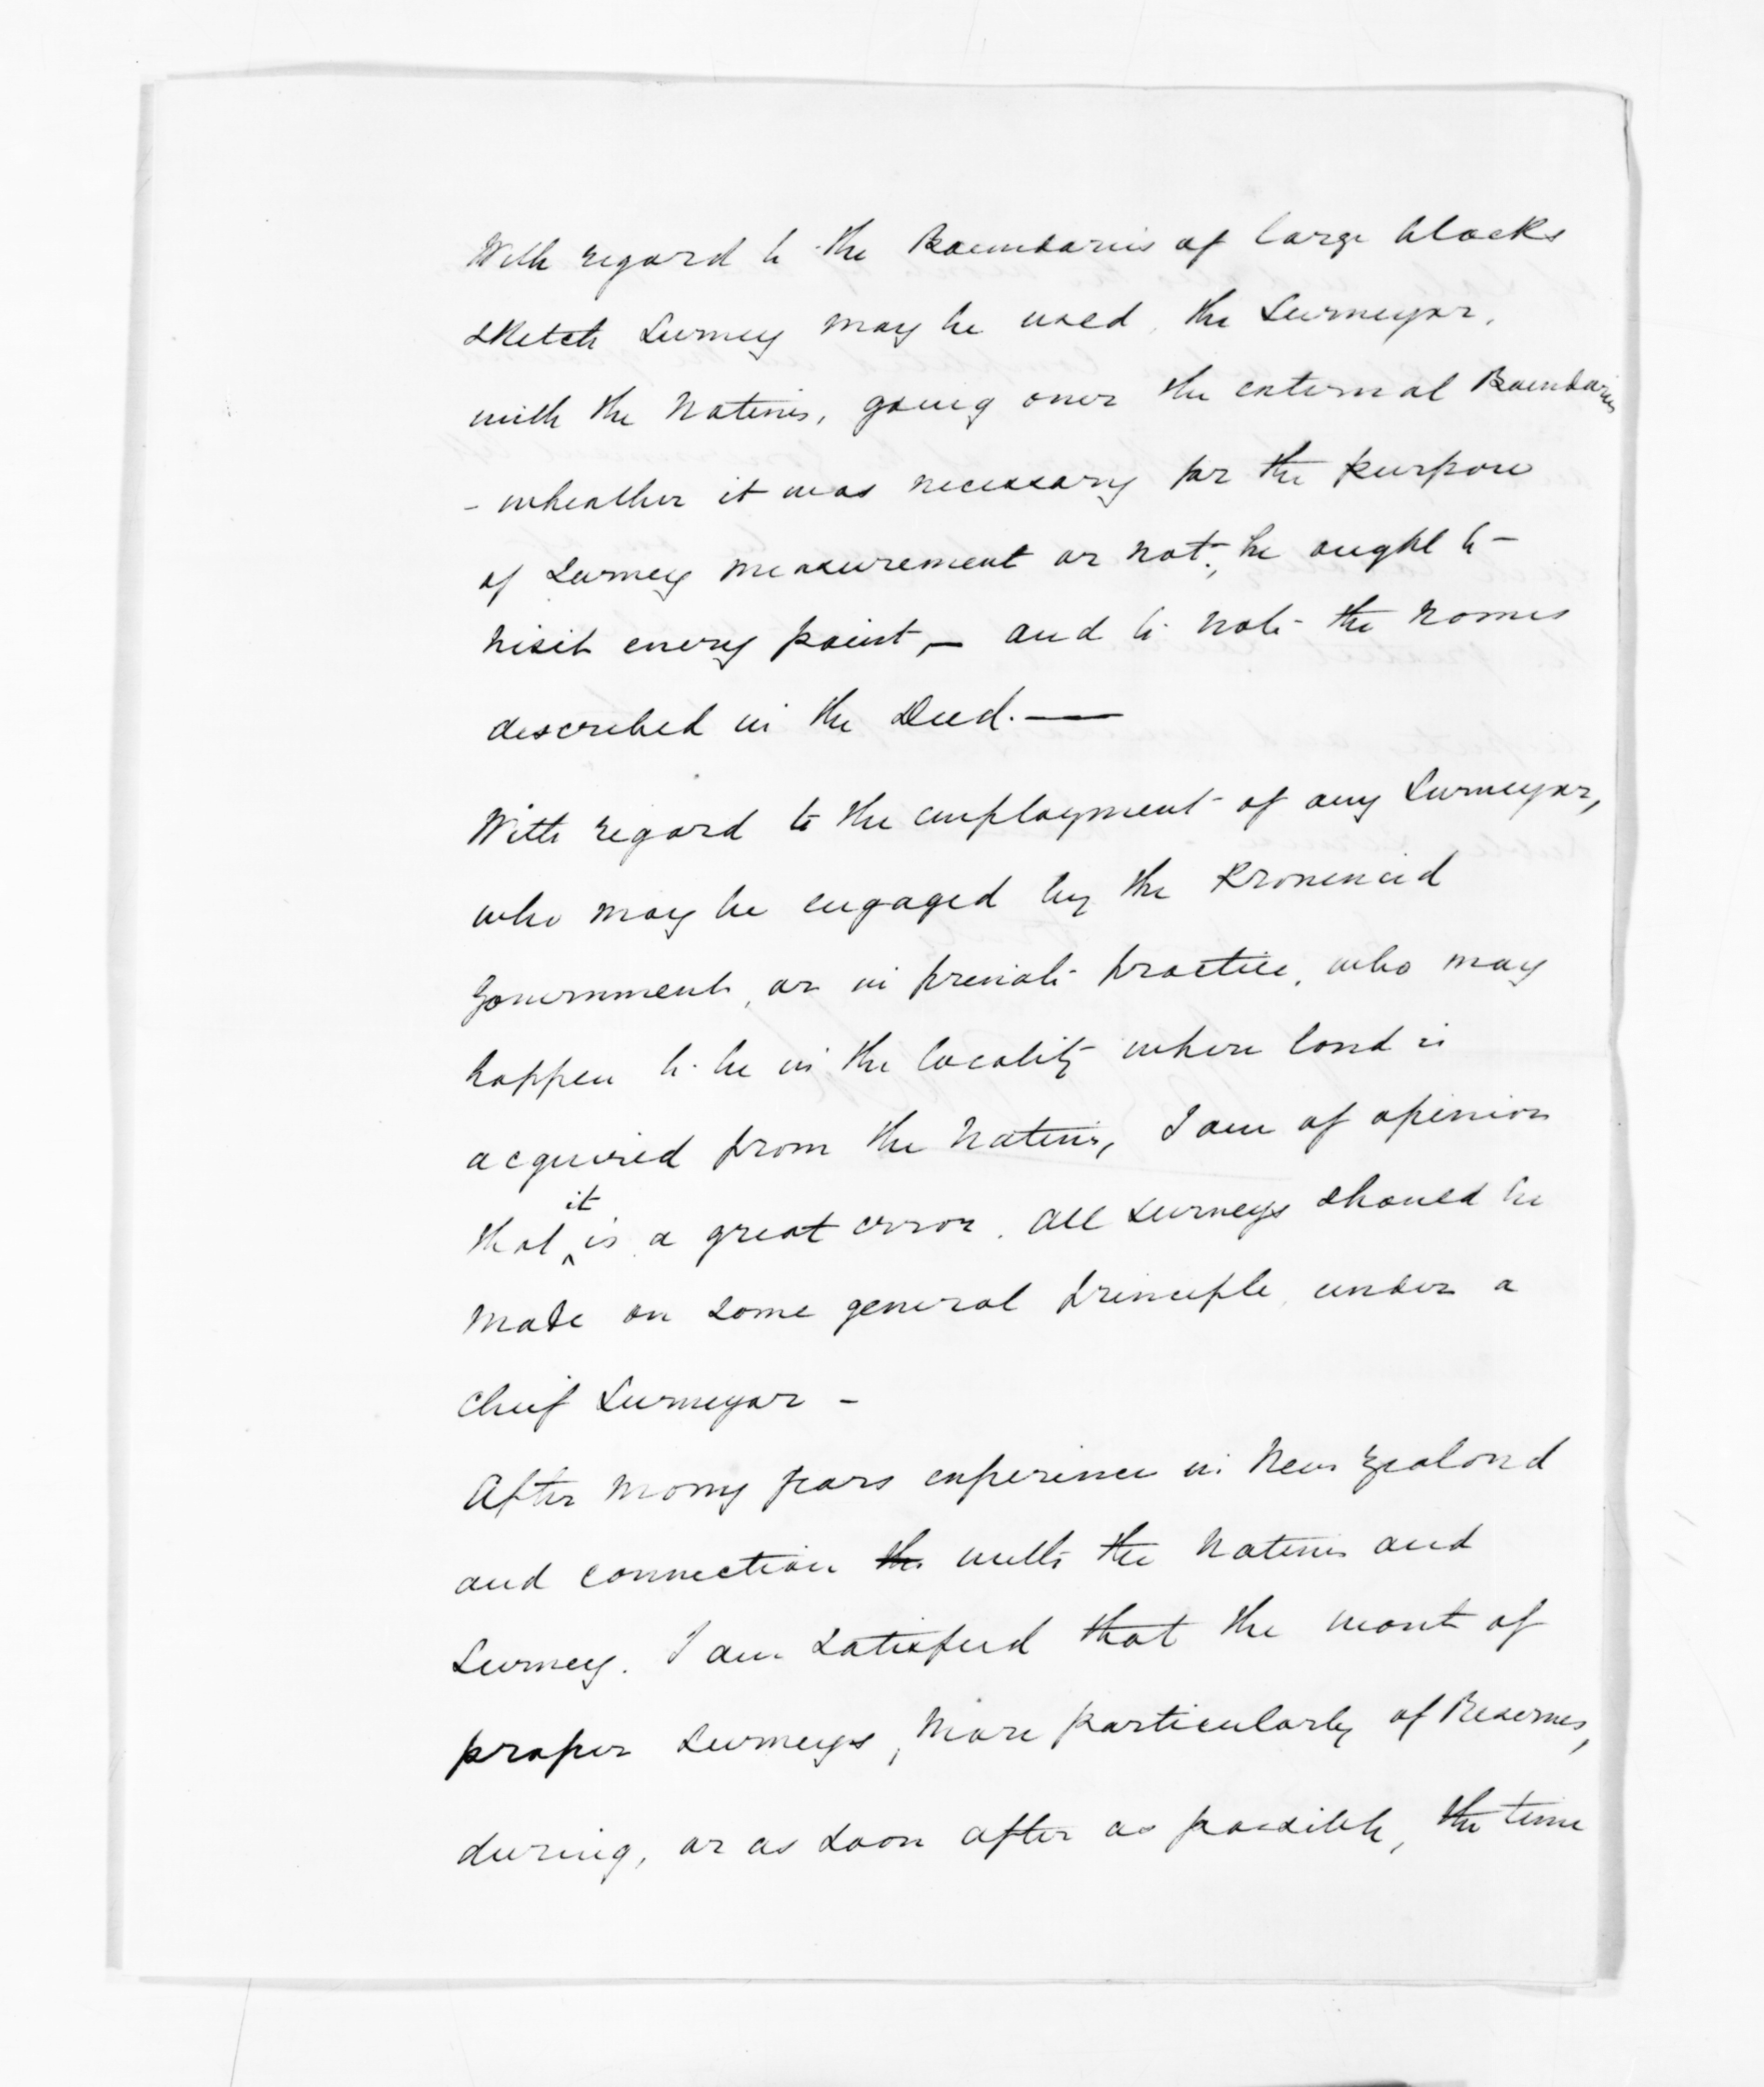 With regard to the Boundaries of large blocks
sketch Survey may be used, the Surveyor,
with the Natives, going over the external Boundaries
- wheather it was necessary for the purpose
of Survey measurement or not, he ought to
visit every point, - and to note the names
described in the Deed. —
With regard to the employment of any Surveyor,
who may be engaged by the Provincial
Government, or in private practice, who may
happen to be in the locality where land is
acquired from the Natives, I am of opinion
that it is a great error. All surveys should be
made on some general principle, under a
Chief Surveyor -
After many years experience in New Zealand
and connection the with the Natives and
Survey. I am satisfied that the want of
proper Surveys, more particularly of Reserves,
during, or as soon after as possible, the time